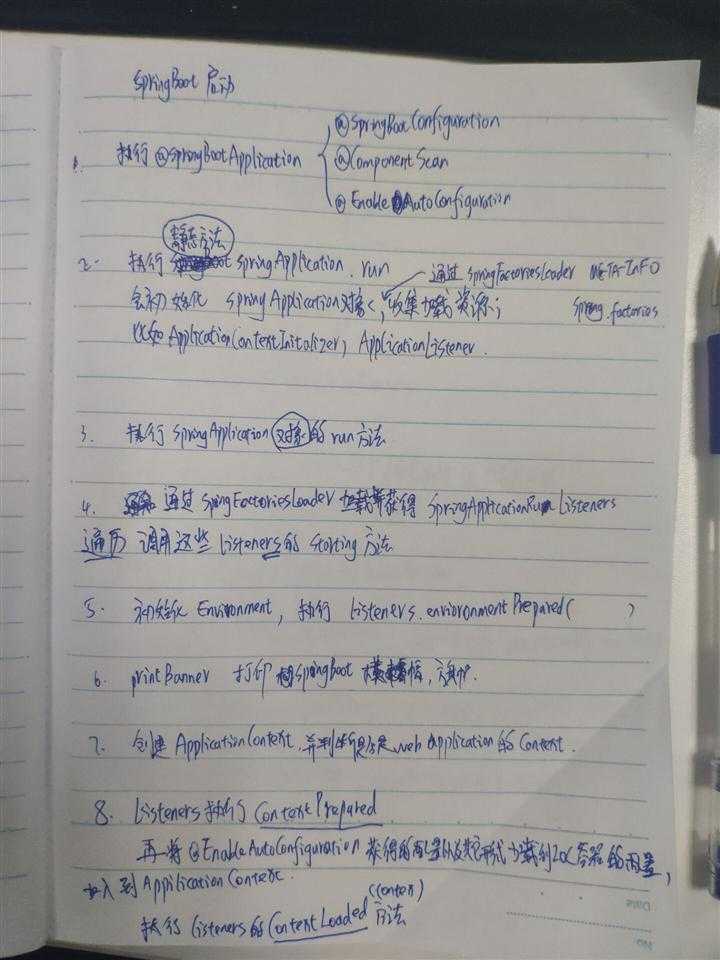 SpringBoot 启动
1. 执行 @SpringBootApplication
@SpringBootConfiguration
@ComponentScan
@EnableAutoConfiguration
静态方法
2. 执行 springApplication.run
通过 springFactoriesLoader META-INFO
会初始化 springApplication对象, 收集加载资源;
spring.factories
比如 ApplicationContextInitalizer, ApplicationListener.
3. 执行 springApplication 对象 的 run 方法
4. 通过 SpringFactoriesLoader 加载并获得 SpringApplicationRunListeners
遍历 调用这些 listeners的 starting 方法
5. 初始化 Environment, 执行 listeners.envioronmentPrepared( )
6. printBanner 打印 springBoot
7. 创建 ApplicationContext, 并判断是否是 web application 的 Context.
8. Listeners 执行 ContextPrepared
再将 @EnableAutoConfiguration 获得的配置以及其它形式 加载到 IOC 容器的配置,
加入到 ApplicationContext.
执行 listeners的 ContextLoaded (contex) 方法
Date
No